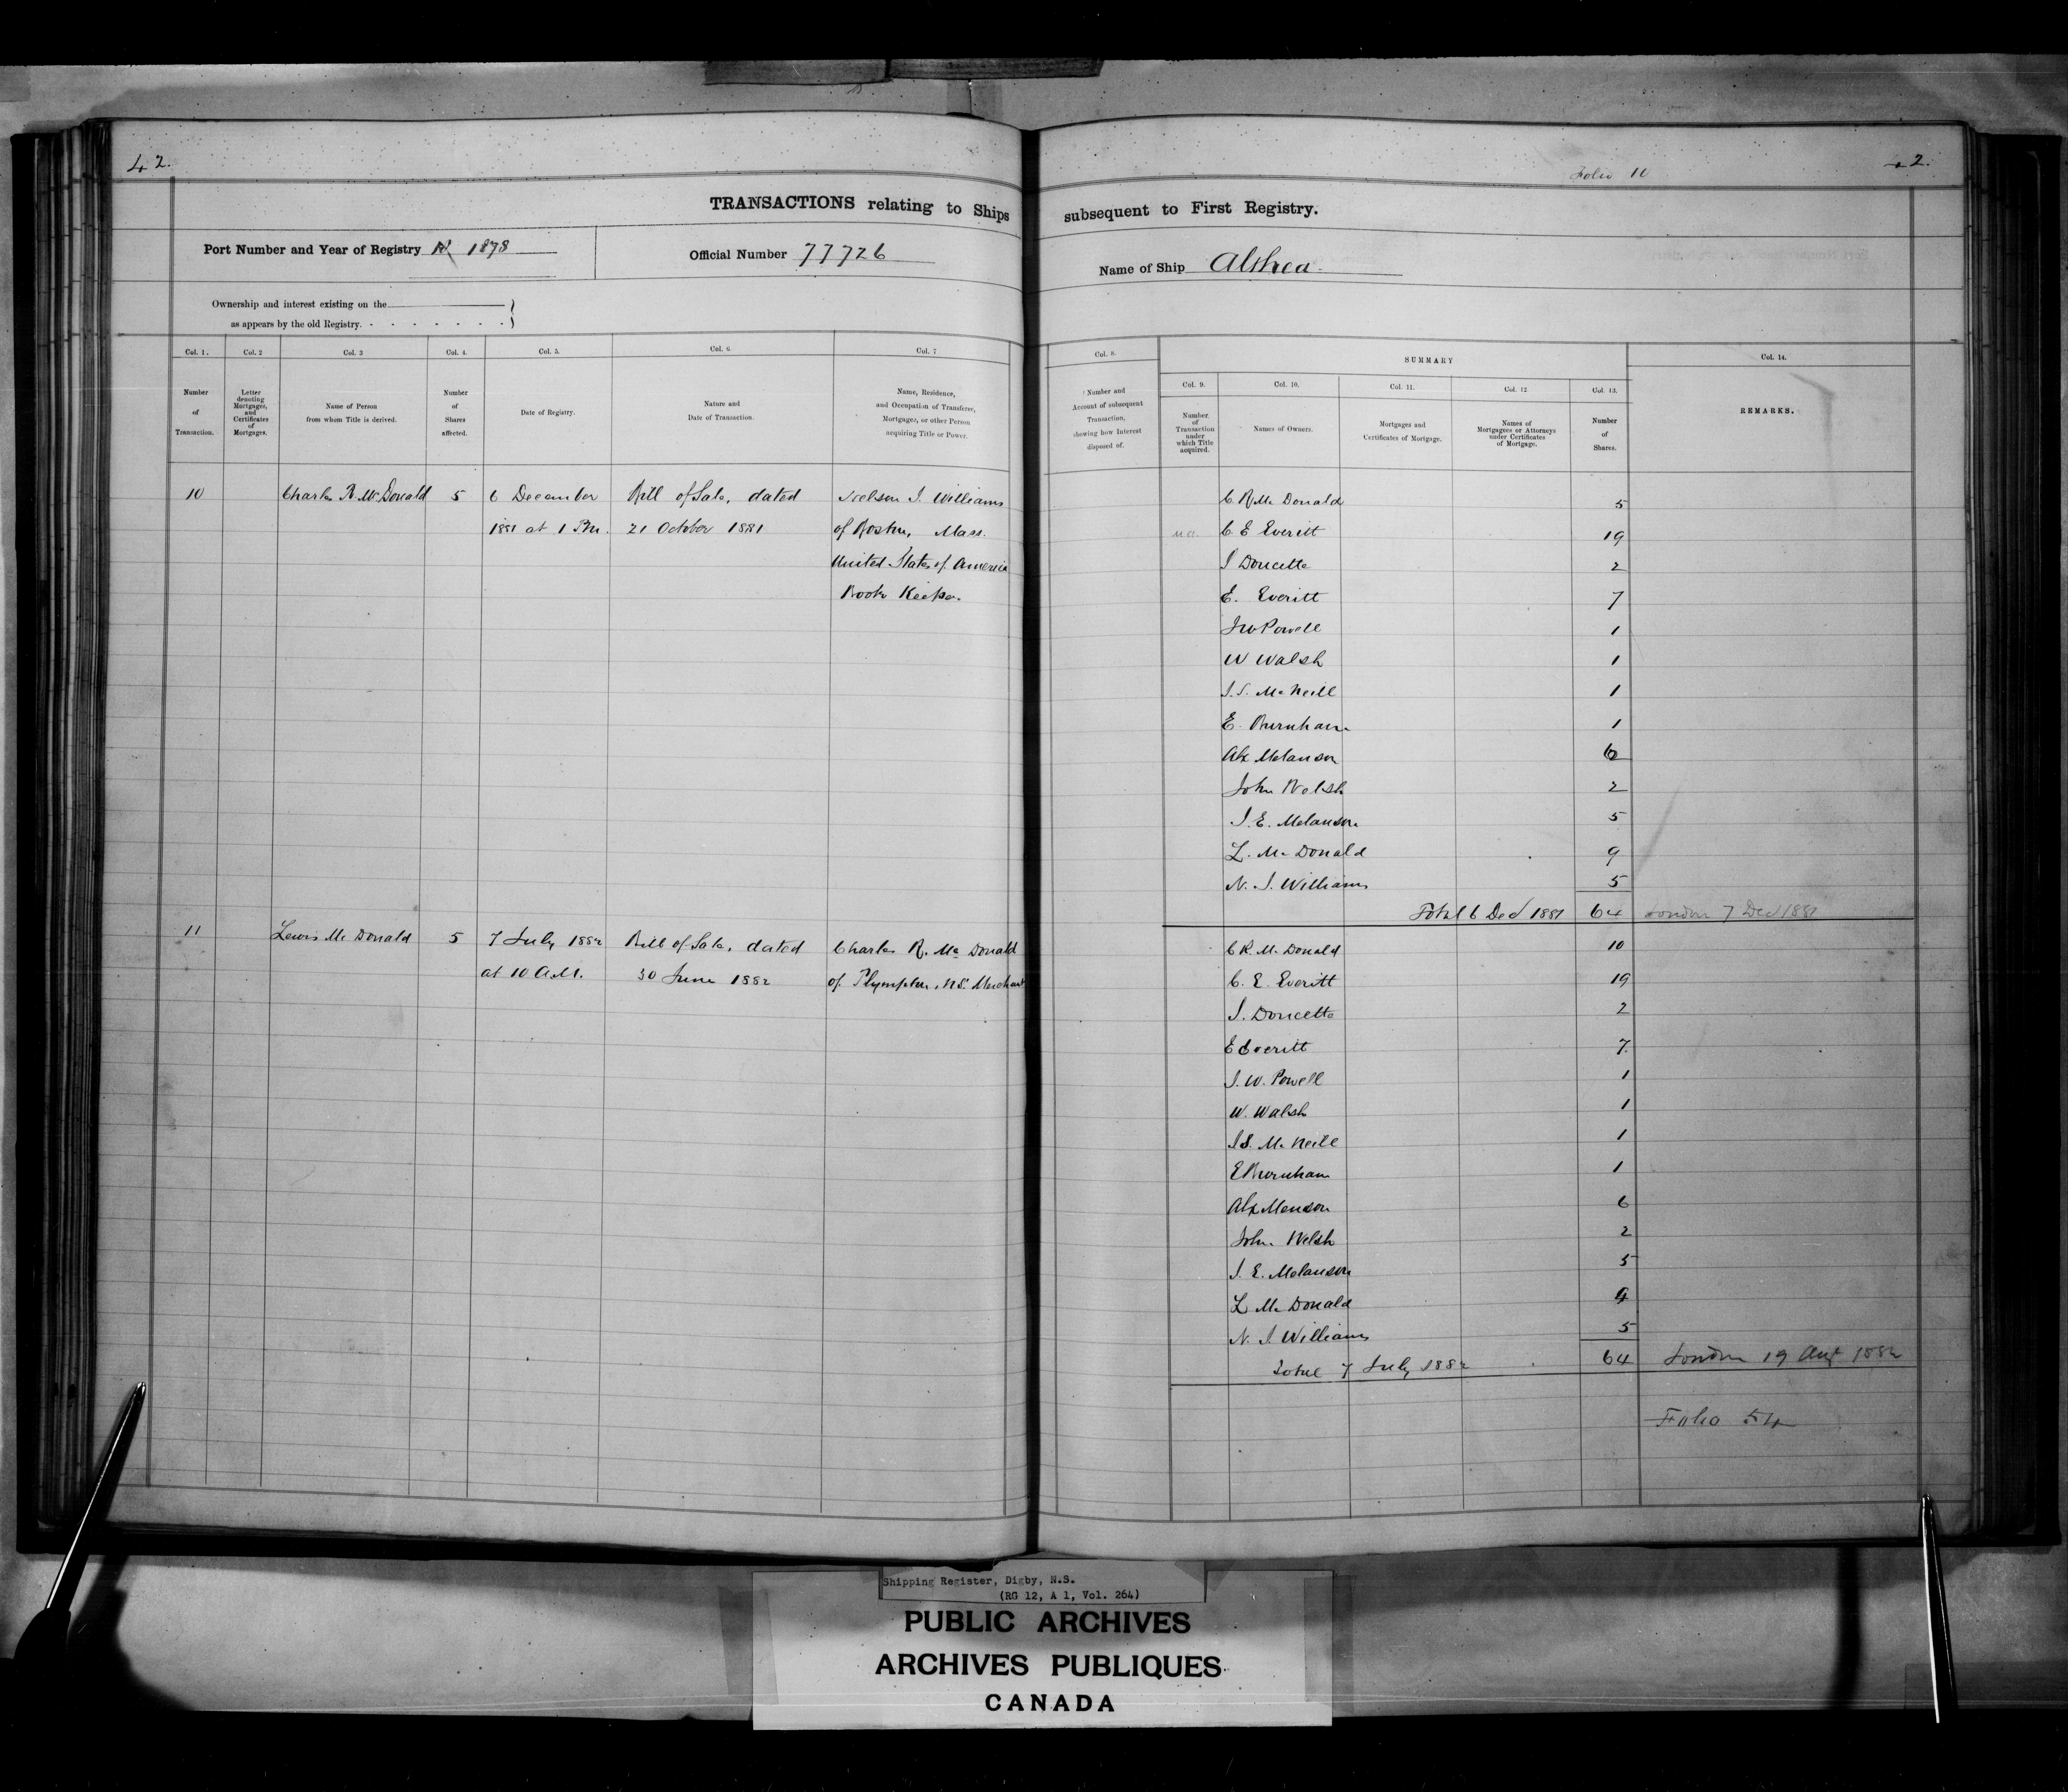 42.
TRANSACTIONS relating to Ships
Port Number and Year of Registry 1878
Official Number 77726
Ownership and interest existing on the
as appears by the old Registry.
Col. 1. Col. 2 Col. 3 Col. 4. Col. 5. Col. 6. Col. 7
Number of Transaction.
Letter denoting Mortgages, and Certificates of Mortgages.
Name of Person from whom Title is derived.
Number of Shares affected.
Date of Registry.
Nature and Date of Transaction.
Name, Residence, and Occupation of Transferee, Mortgagee, or other Person acquiring Title or Power.
10 Charles R. McDonald 5 6 December Bill of Sale, dated Nelson J. Williams
1881 at 1 P.M. 21 October 1881 of Boston, Mass.
United States of America
Book Keeper.
11 Lewis Mc Donald 5 7 July 1882 Bill of Sale, dated Charles R. Mc Donald
at 10 A.M. 30 June 1882 of Plympton, N.S. Merchant
Folio 11
42.
subsequent to First Registry.
Name of Ship Althea
Col. 8. SUMMARY Col. 14.
Col. 9. Col. 10. Col. 11. Col. 12 Col. 13.
Number and Account of subsequent Transaction, showing how Interest disposed of.
Number of Transaction under which Title acquired.
Names of Owners.
Mortgages and Certificates of Mortgage.
Names of Mortgagees or Attorneys under Certificates of Mortgage.
Number of Shares.
REMARKS.
C. R Mc Donald 5
C. E Everitt 19
J Doucette 2
E. Everitt 7
J W Powell 1
W Walsh 1
J. S. Mc Neill 1
E. Burnham 1
Alx Melanson 6
John Welsh 2
J. E. Melanson 5
L. Mc Donald 9
N. J. Williams 5
Total 6 Dec 1881 64 London 7 Dec 1881
C R. Mc Donald 10
C. E. Everitt 19
J. Doucette 2
E Everitt 7.
J. W. Powell 1
W. Walsh 1
J S. Mc Neill 1
E Burnham 1
Alx Menson 6
John Welsh 2
J. E. Melanson 5
L Mc Donald 4
N. J. Williams 5
Total 7 July 1882 64 London 19 Aug 1882
Folio 54
Shipping Register, Digby, N.S.
(RG 12, A 1, Vol. 264)
PUBLIC ARCHIVES
ARCHIVES PUBLIQUES
CANADA